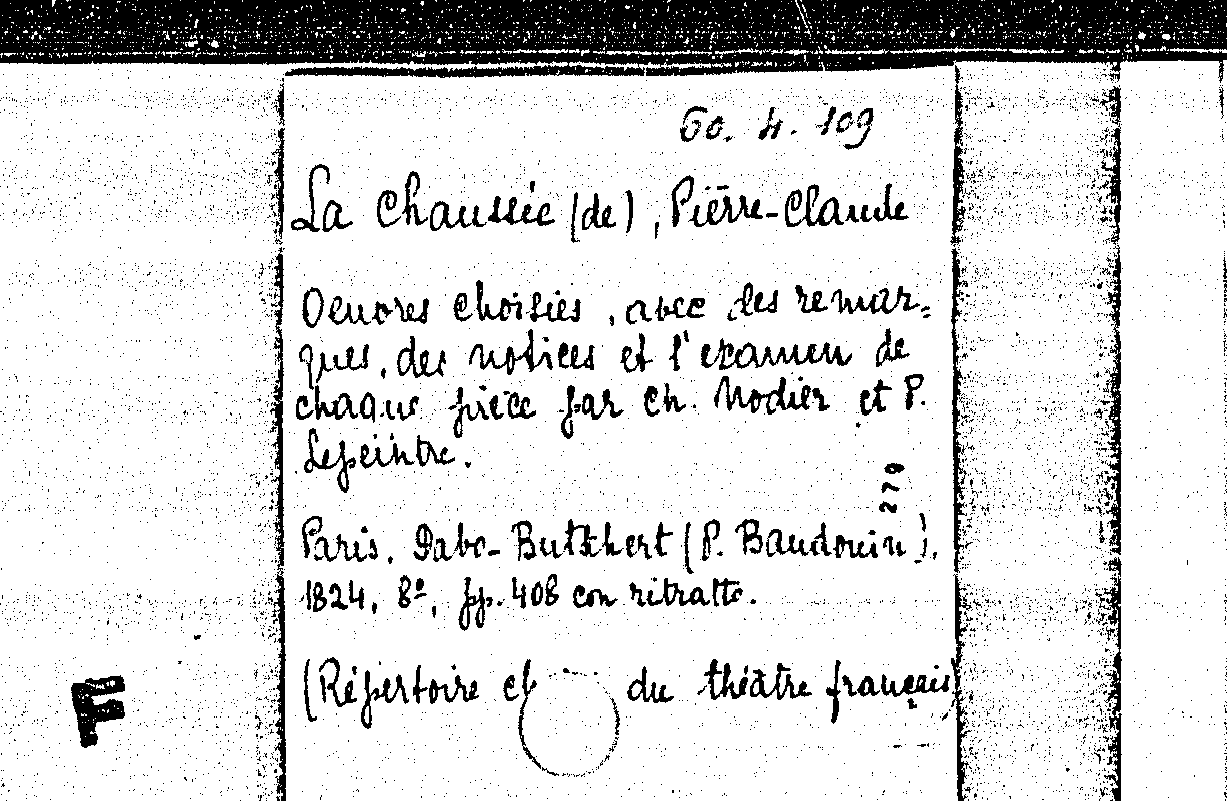 60. 4. 109
La Chaussée (de), Pierre-Claude
Oeuvres choisies, avec des remar=
ques, des notices et l'examen de
chaque pièce par Ch. Nodier et P.
Lepeintre.
279
Paris. Dabo-Butschert (P. Baudouin),
1824, 8º, pp. 408 con ritratto.
(Répertoire ch du théâtre français)
F